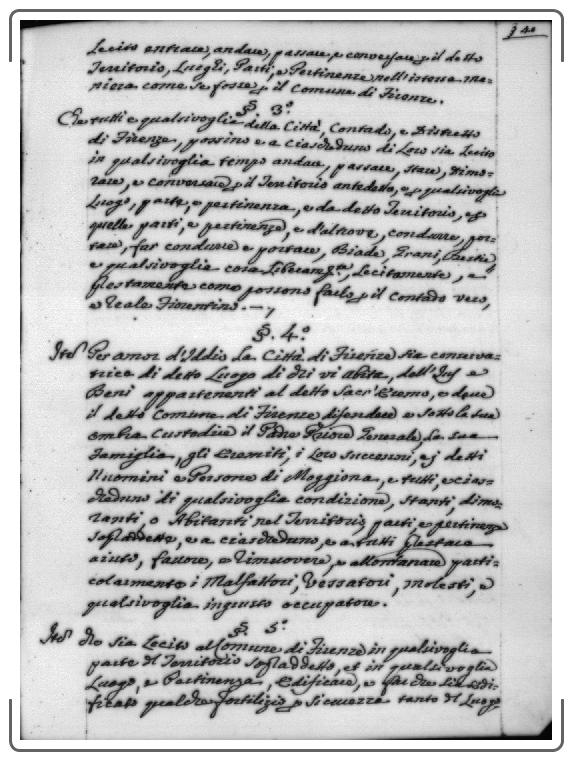 340
Lecito entrare, andare, passare, e conversare p il detto
Territorio, Luoghi, Parti, e Pertinenze nell'istessa ma-
niera come se fosse p il Comune di Firenze.
§. 3.°
Che tutti e qualsivoglia della Città, Contado, e Distretto
di Firenze, possino e a ciascheduno di Loro sia Lecito
in qualsivoglia tempo andare, passare, stare, dimo-
rare, e conversare p il Territorio antedetto, e p qualsivoglia
Luogo, parte, e pertinenza, e da detto Territorio, e
quelle parti, e pertinenze, e d'altrove, condurre, por-
tare, far condurre e portare, Biade, Grani, Bestie
e qualsivoglia cosa Liberamte, Lecitamente, e
prestamente come possono farlo p il Contado vero,
e Reale Fiorentino.
§. 4.°
Itð Per amor d'Iddio La Città di Firenze sia conserva-
trice di detto Luogo di chi vi abita, dell'Jus e
Beni appartenenti al detto Sacr'Eremo, e deve
il detto Comune di Firenze difendere e sotto la sua
ombra Custodire il Padre Priore Generale, La sua
Famiglia, gli Eremiti, i Loro successori, e i detti
Huomini e Persone di Moggiona, e tutti, e cias-
cheduno di qualsivoglia condizione, stanti, dimo-
ranti, o Abitanti nel Territorio, parti, e pertinenze
Sopraddette, e a ciascheduno, e a tutti Prestare
aiuto, favore, e rimuovere, e allontanare parti-
colarmente i Malfattori, Vessatori, molesti, e
qualsivoglia ingiusto occupatore.
§. 5.°
Itð che sia Lecito al Comune di Firenze in qualsivoglia
parte del Territorio Sopraddetto, et in qualsivoglia
Luogo, e Pertinenza, Edificare, e far che sia edi-
ficato qualche fortilizio p sicurezza tanto del Luogo